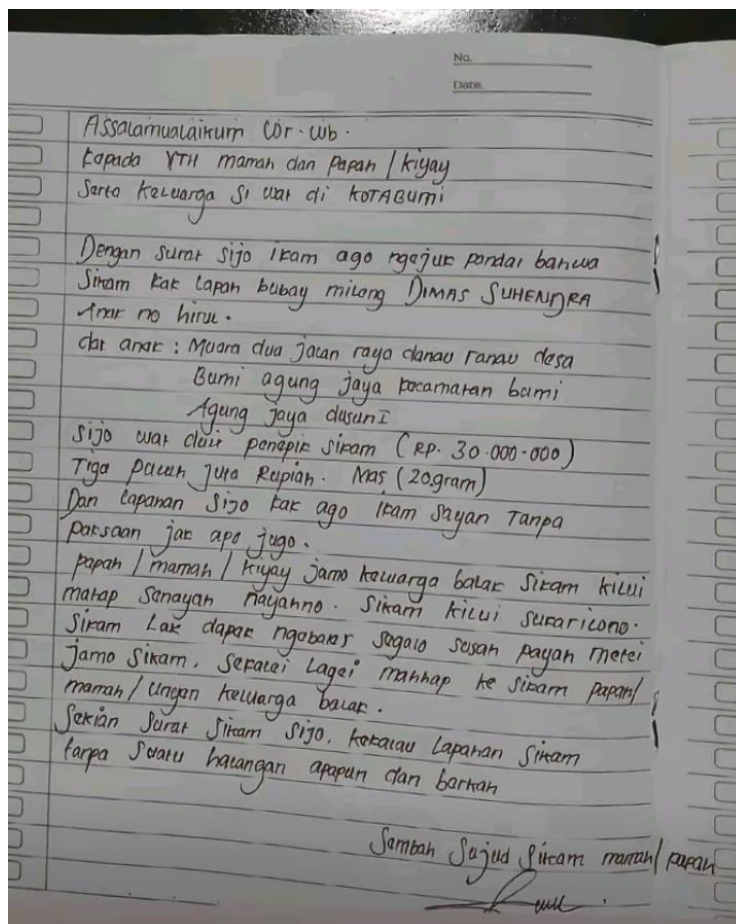 No.
Date.
Assalamualaikum Wr. Wb.
Kapada YTH mamah dan papah / kiyay
Serta keluarga si war di KOTABUMI
Dengan surat sijo ikam ago ngajuk pandai bahwa
Sikam kak lapah bubay milang DIMAS SUHENDRA
Anak no hiruk.
dar anak : Muara dua jalan raya danau ranau desa
Bumi agung jaya kecamatan bumi
Agung jaya dusun I
Sijo war duit penapik sikam (RP. 30.000.000)
Tiga puluh juta Rupiah. Mas (20 gram)
Dan lapahan sijo kak ago ikam sayan Tanpa
paksaan jak apo jugo.
papah / mamah / kiyay jamo keluarga balak sikam kilui
mahap sanayan nayanno. Sikam kilui sukaricono.
Sikam Lak dapak ngobalas segalo susah payah metei
jamo sikam. sekalei lagei mahhap ke sikam papah/
mamah / ungah keluarga balak.
Sekian surat sikam sijo. kekalau lapahan sikam
tanpa suatu halangan apapun dan barkah
Sambah Sujud sikam mamah / papah